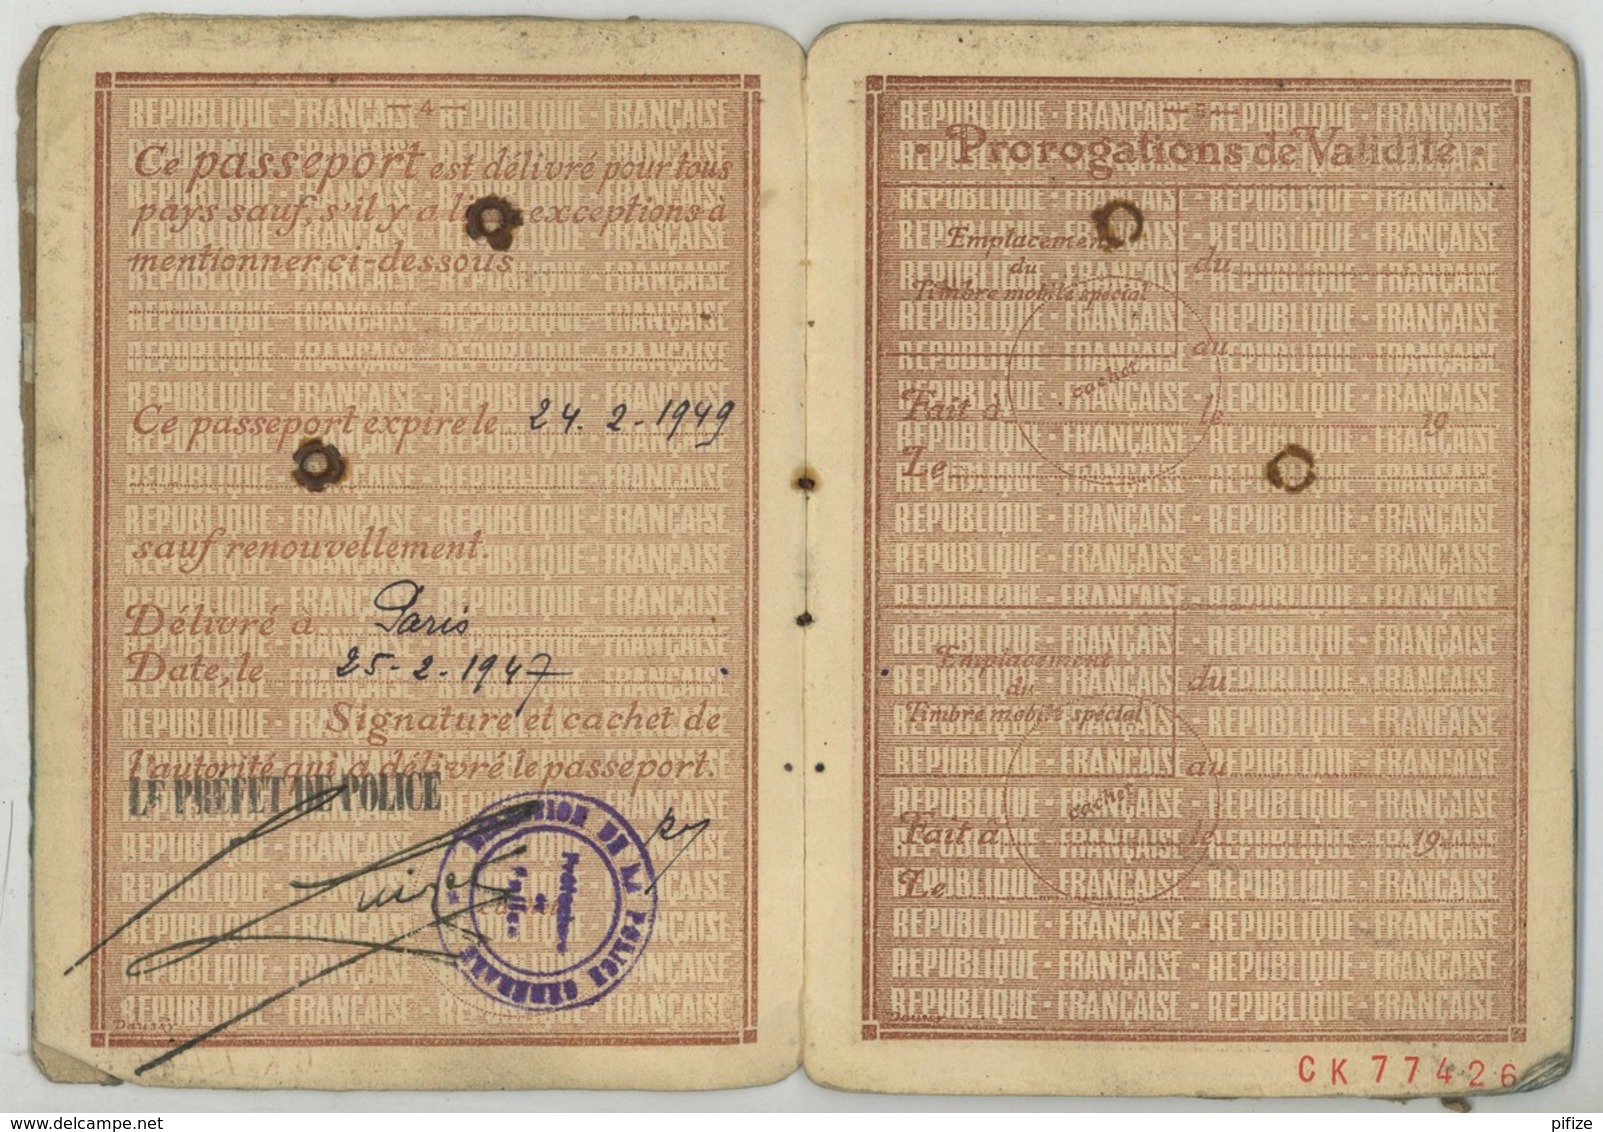 — 4 —
Ce passeport est délivré pour tous
pays sauf, s'il y a lieu, exceptions à
mentionner ci-dessous
Ce passeport expire le 24.2-1949
sauf renouvellement.
Délivré à Paris
Date, le 25-2-1947
Signature et cachet de
l'autorité qui a délivré le passeport.
LE PREFET DE POLICE
DIRECTION DE LA POLICE GENERALE
Préfecture
de
Police
cachet
Daussy
— 5 —
· Prorogations de Validité ·
Emplacement
du
Timbre mobile spécial
du
au
cachet
Fait à le 19
Le
Emplacement
du
Timbre mobile spécial
du
au
cachet
Fait à le 19
Le
Daussy
CK77426
delcampe.net
pifize
REPUBLIQUE - FRANÇAISE - REPUBLIQUE - FRANÇAISE